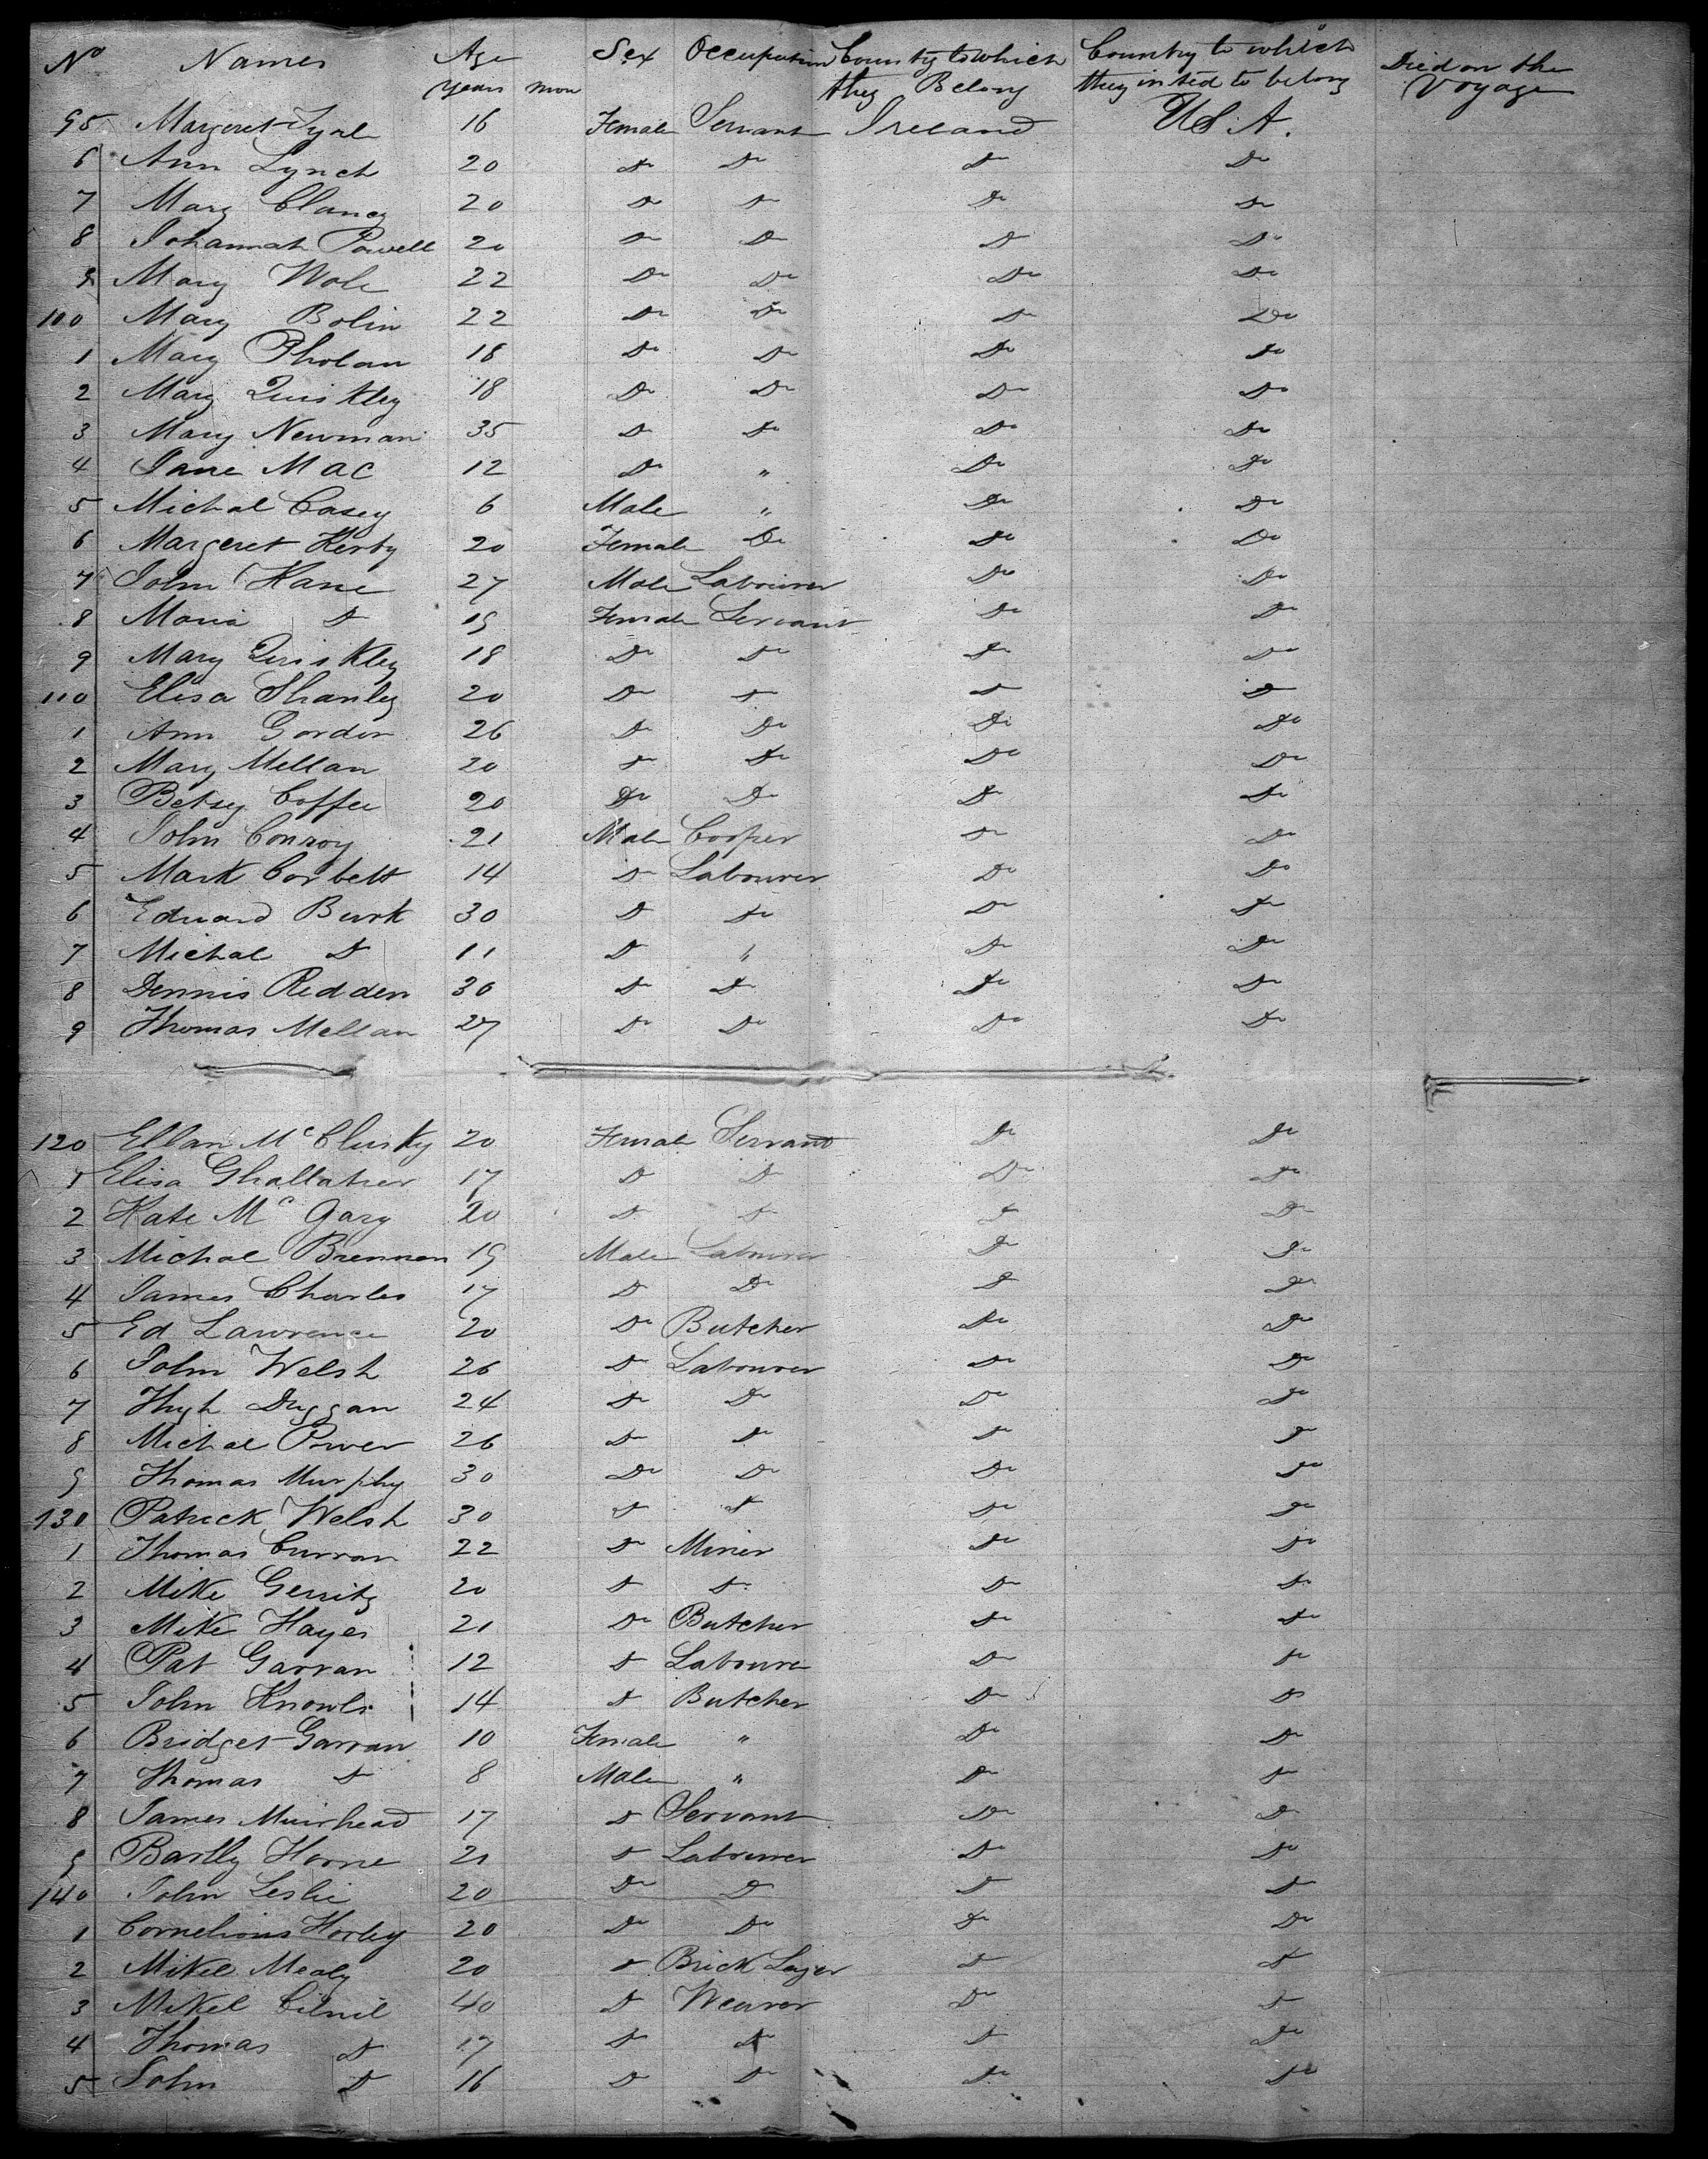 No Names Age years mon Sex Occupation Country to which they Belong Country to which they inted to belong Died on the Voyage
95 Margeret 16 Female Servant Ireland U.S.A.
6 Ann Lynch 20 Do Do Do Do
7 Mary Clancy 20 Do Do Do Do
8 Johannah Powell 20 Do Do Do Do
9 Mary Wole 22 Do Do Do Do
100 Mary Bolin 22 Do Do Do Do
1 Mary Pholan 18 Do Do Do Do
2 Mary Quiskley 18 Do Do Do Do
3 Mary Newman 35 Do Do Do Do
4 Jane Mac 12 Do " Do Do
5 Michal Casey 6 Male " Do Do
6 Margeret Kerby 20 Female Do Do Do
7 John Kane 27 Male Labourer Do Do
8 Maria Do 19 Female Servant Do Do
9 Mary Quiskley 18 Do Do Do Do
110 Elisa Shanley 20 Do Do Do Do
1 Ann Gordon 26 Do Do Do Do
2 Mary Mellan 20 Do Do Do Do
3 Betsey Coffee 20 Do Do Do Do
4 John Conroy 21 Male Cooper Do Do
5 Mark Corbett 14 Do Labourer Do Do
6 Eduard Burk 30 Do Do Do Do
7 Michal Do 11 Do " Do Do
8 Dennis Redden 30 Do Do Do Do
9 Thomas Mellan 27 Do Do Do Do
120 Ellan McClusky 20 Female Servant Do Do
1 Elisa Ghallaher 17 Do Do Do Do
2 Kate Mc Gary 20 Do Do Do Do
3 Michal Brennen 19 Male Labourer Do Do
4 James Charles 17 Do Do Do Do
5 Ed Lawrence 20 Do Butcher Do Do
6 John Welsh 26 Do Labourer Do Do
7 Hugh Duggan 24 Do Do Do Do
8 Michal Power 26 Do Do Do Do
9 Thomas Murphy 30 Do Do Do Do
130 Patrick Welsh 30 Do Do Do Do
1 Thomas Curran 22 Do Miner Do Do
2 Mike Gerrity 20 Do Do Do Do
3 Mike Hayes 21 Do Butcher Do Do
4 Pat Garran 12 Do Laboure Do Do
5 John Knowls 14 Do Butcher Do Do
6 Bridget Garran 10 Female " Do Do
7 Thomas Do 8 Male " Do Do
8 James Muirhead 17 Do Servant Do Do
9 Bartly Horne 21 Do Labourer Do Do
140 John Leslie 20 Do Do Do Do
1 Cornelious Horley 20 Do Do Do Do
2 Mikel Mealy 20 Do Brick Layer Do Do
3 Mikel 40 Do Weaver Do Do
4 Thomas Do 17 Do Do Do Do
5 John Do 16 Do Do Do Do